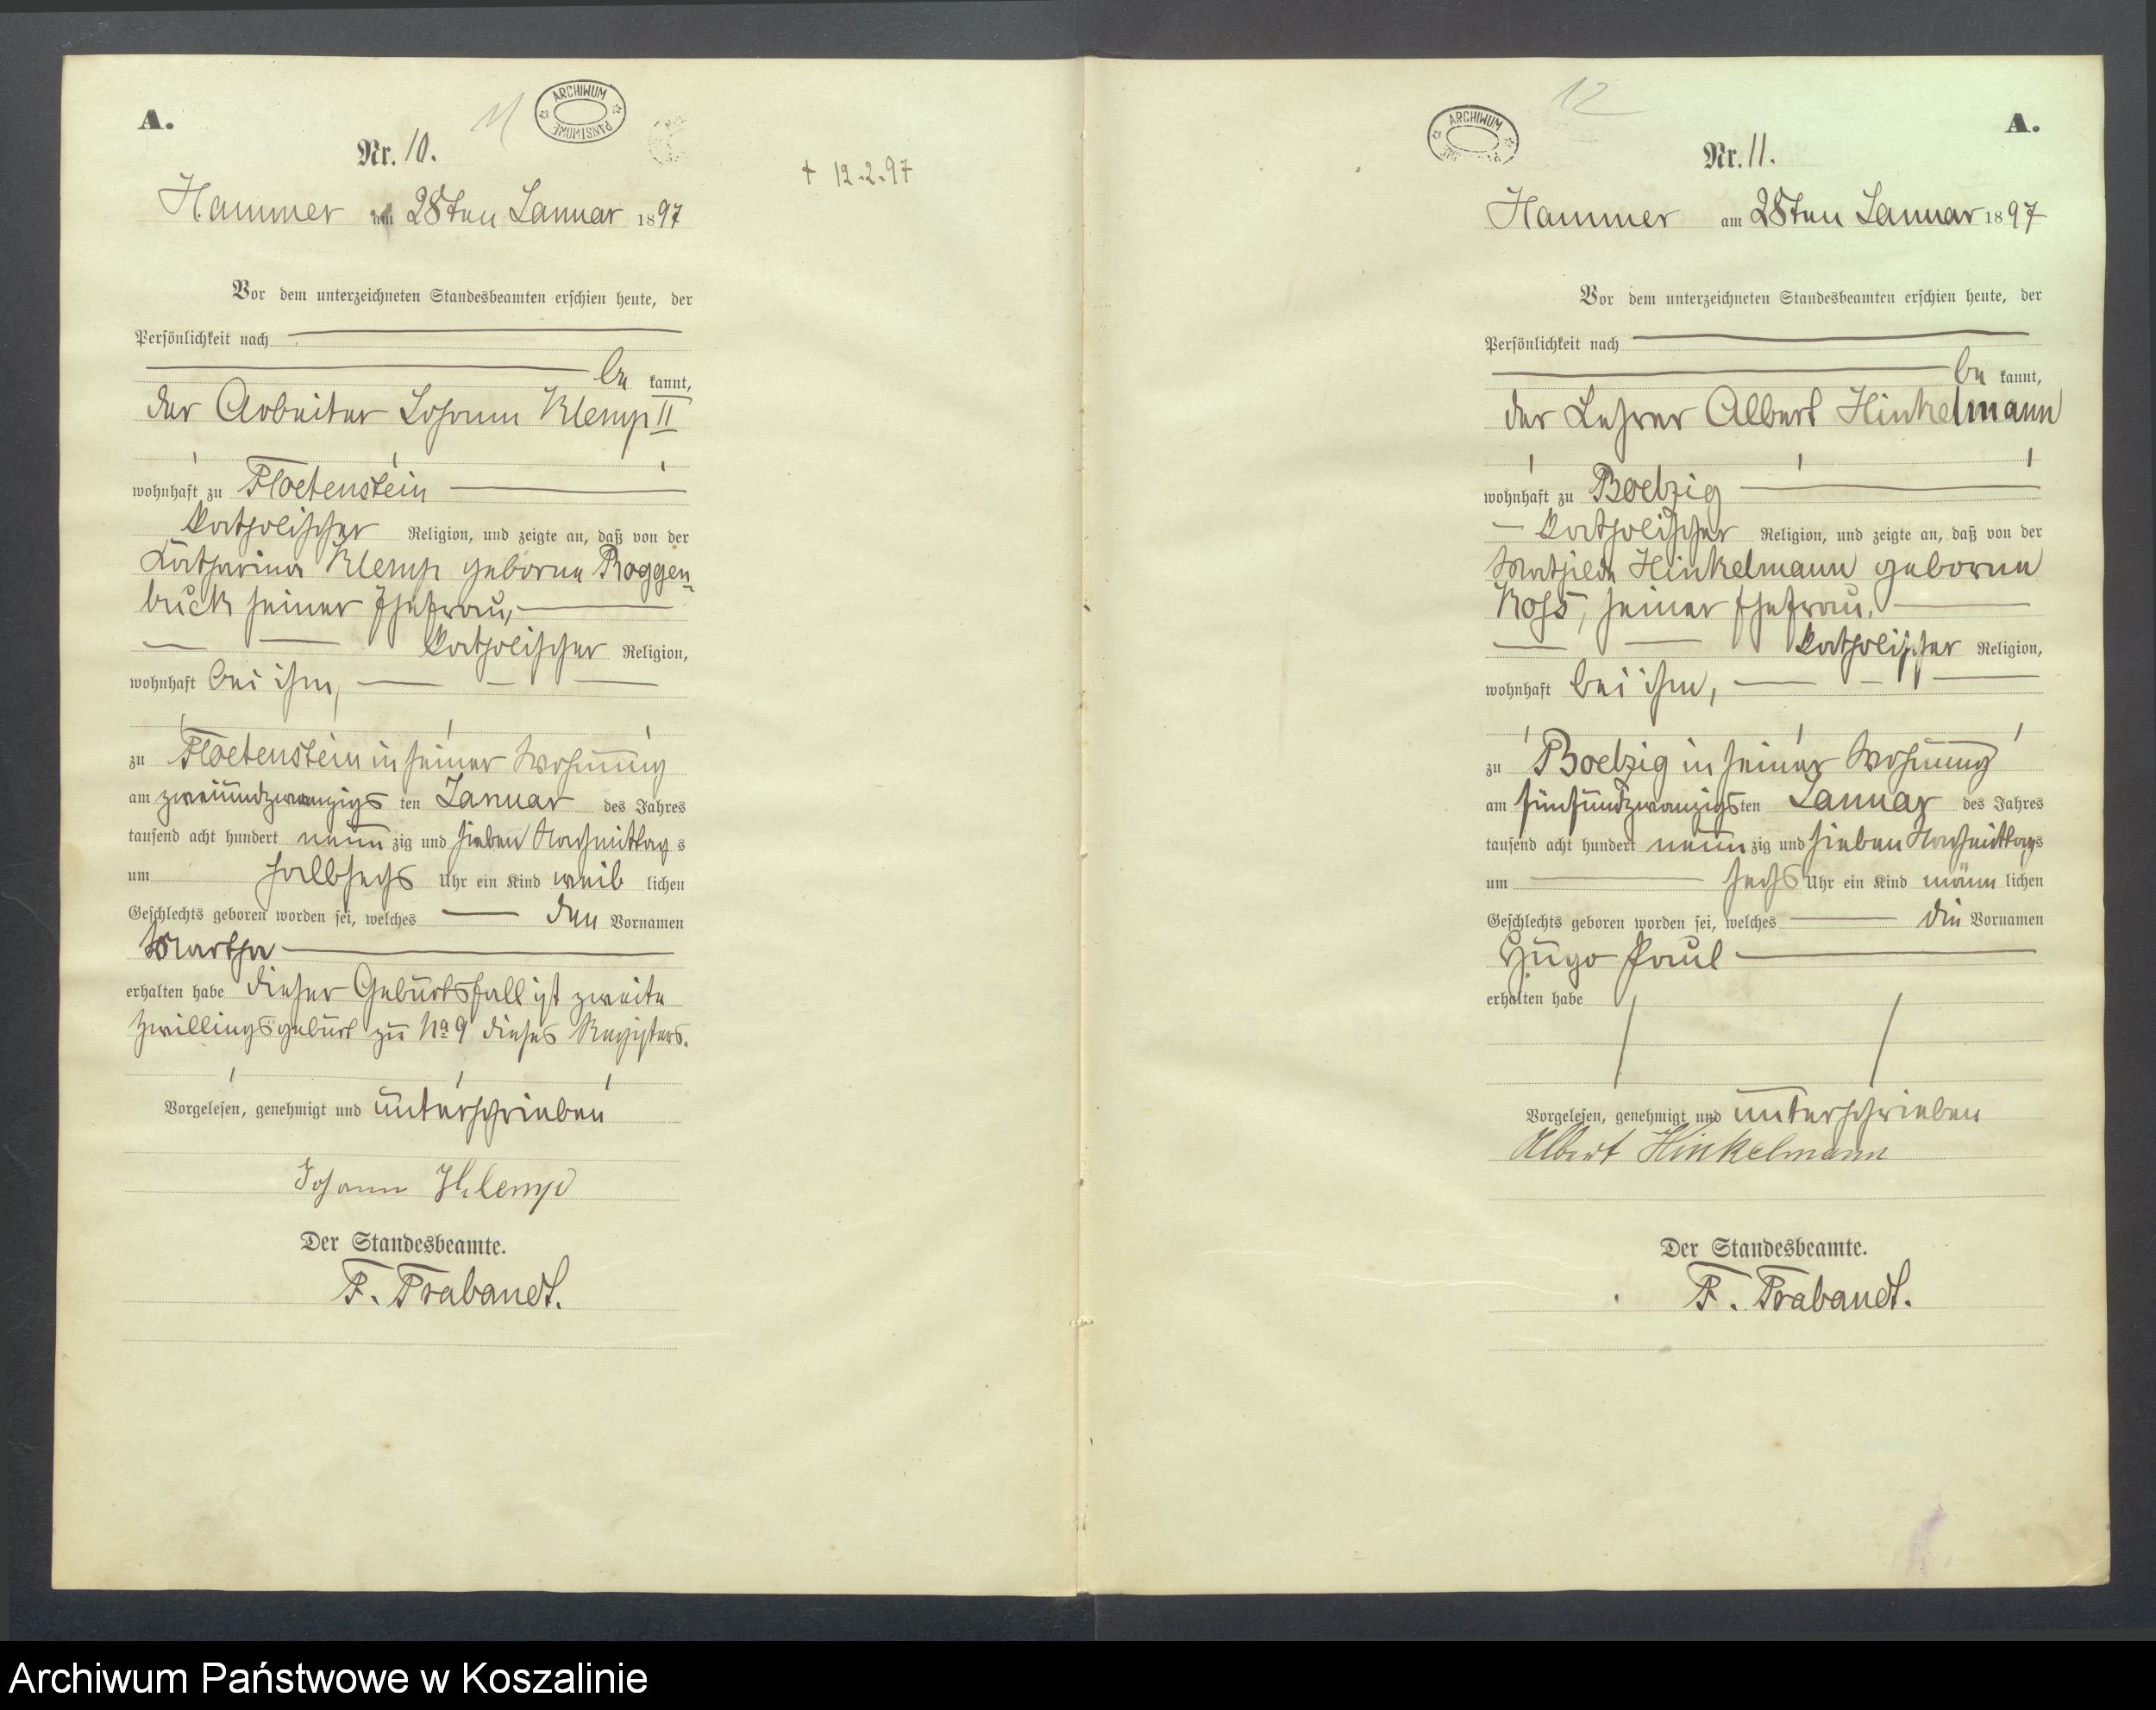 A.
11
ARCHIWUM PAŃSTWOWE
Nr. 10.
+ 12.2.97
Hammer am 28ten Januar 1897
Vor dem unterzeichneten Standesbeamten erschien heute, der
Persönlichkeit nach
be kannt,
der Arbeiter Johann Klemp II
wohnhaft zu Floetenstein
katholischer Religion, und zeigte an, daß von der
Katharina Klemp geborne Roggen-
buck seiner Ehefrau,
katholischer Religion,
wohnhaft bei ihm,
zu Floetenstein in seiner Wohnung
am zweiundzwanzigs ten Januar des Jahres
tausend acht hundert neun zig und sieben Nachmittag s
um halbsechs Uhr ein Kind weib lichen
Geschlechts geboren worden sei, welches den Vornamen
Martha
erhalten habe dieser Geburtsfall ist zweite
Zwillingsgeburt zu No 9 dieses Registers.
Vorgelesen, genehmigt und unterschrieben
Johann Klemp
Der Standesbeamte.
F. Trabandt.
12
ARCHIWUM
A.
Nr. 11.
Hammer am 28ten Januar 1897
Vor dem unterzeichneten Standesbeamten erschien heute, der
Persönlichkeit nach
be kannt,
der Lehrer Albert Hinkelmann
wohnhaft zu Boelzig
katholischer Religion, und zeigte an, daß von der
Mathilde Hinkelmann geborne
Koss, seiner Ehefrau,
katholischer Religion,
wohnhaft bei ihm,
zu Boelzig in seiner Wohnung
am fünfundzwanzigs ten Januar des Jahres
tausend acht hundert neun zig und sieben Nachmittags
um sechs Uhr ein Kind männ lichen
Geschlechts geboren worden sei, welches die Vornamen
Hugo Paul
erhalten habe
Vorgelesen, genehmigt und unterschrieben
Albert Hinkelmann
Der Standesbeamte.
F. Trabandt.
Archiwum Państwowe w Koszalinie